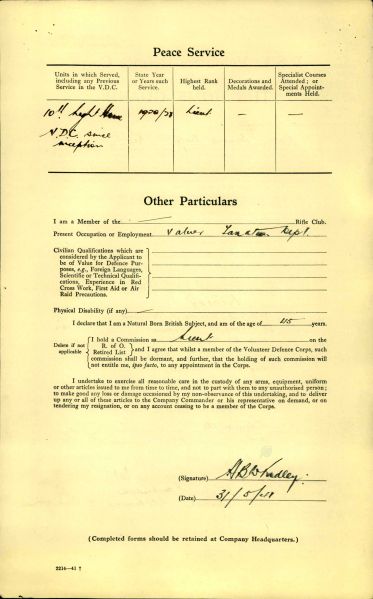 Peace Service
Units in which Served, including any Previous Service in the V.D.C.
State Year or Years such Service.
Highest Rank held.
Decorations and Medals Awarded.
Specialist Courses Attended; or Special Appointments Held.
10th Light Horse 1920/28 Lieut — —
V.D.C. since
inception
Other Particulars
I am a Member of the — Rifle Club.
Present Occupation or Employment. Valuer Taxation Dept.
Civilian Qualifications which are
considered by the Applicant to
be of Value for Defence Pur-
poses, e.g., Foreign Languages,
Scientific or Technical Qualifi-
cations, Experience in Red
Cross Work, First Aid or Air
Raid Precautions.
Physical Disability (if any) —
I declare that I am a Natural Born British Subject, and am of the age of 45 years.
Delete if not applicable
I hold a Commission as Lieut on the
R. of O.
Retired List
and I agree that whilst a member of the Volunteer Defence Corps, such
commission shall be dormant, and further, that the holding of such commission will
not entitle me, ipso facto, to any appointment in the Corps.
I undertake to exercise all reasonable care in the custody of any arms, equipment, uniform
or other articles issued to me from time to time, and not to part with them to any unauthorised person;
to make good any loss or damage occasioned by my non-observance of this undertaking, and to deliver
up any or all of these articles to the Company Commander or his representative on demand, or on
tendering my resignation, or on any account ceasing to be a member of the Corps.
(Signature)
(Date) 31/5/
(Completed forms should be retained at Company Headquarters.)
2214—41 †